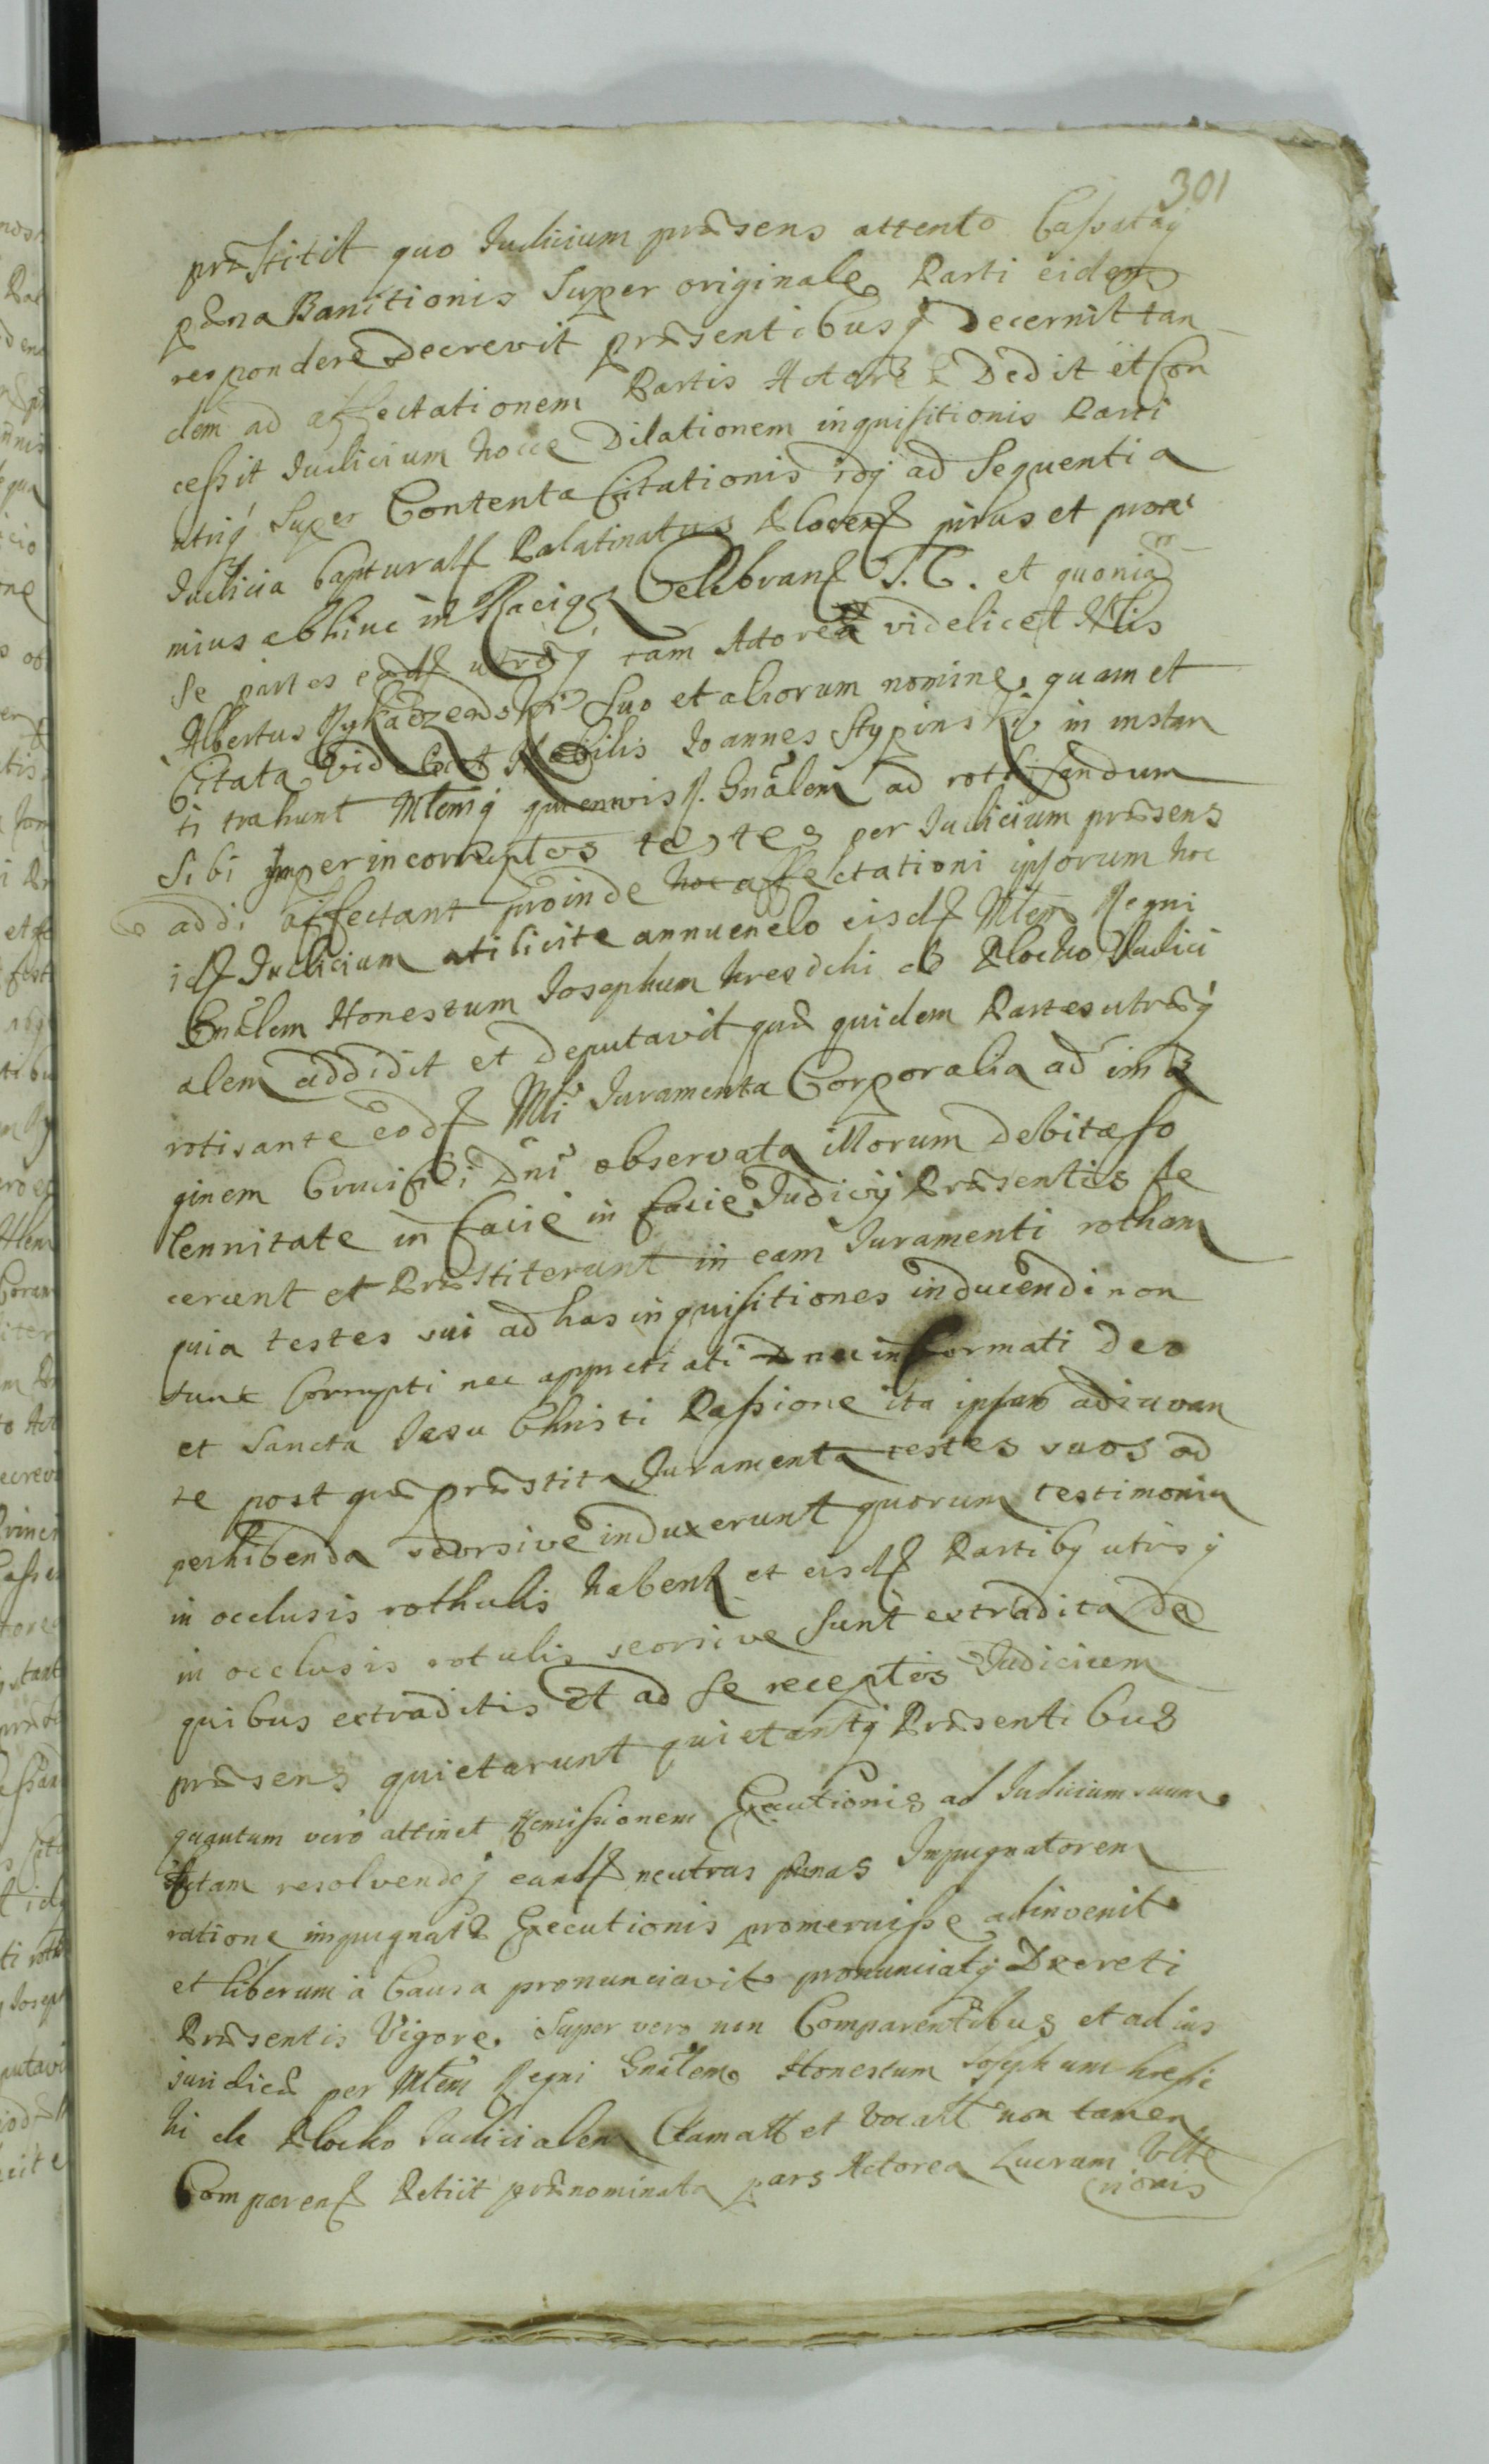 301
præstitit quo Judicium præsens attento Cassataq
pæna Banitionis Super originale Parti eidem
respondere Decrevit præsentibusq Decernit tan
dem ad affectationem Partis Actoreæ Dedit et Con
cessit Judicium hocce Dilationem inquisitionis Parti
utriq Super Contenta Citationis idq ad Sequentia
Judicia Capturalſ Palatinatus Plocenſ prius et proxi
mius abhinc in Raciąz Celebranſ T. C. et quoniam
Se partes eædſ utræq tam Actorea videlicet Nlis
Albertus Rykaczewski Suo et aliorum nomine, quam et
Citata videlicet Nobilis Joannes Stypinski in instan
ti trahunt Mlemq quemvis R. Gnälem ad rotisandum
Sibi super incorruptos testes per Judicium præsens
addi affectant proinde hoc affectationi ipsorum hoc
idſ Judicium uti licite annuendo eisdſ Mlem Regni
Gnälem Honestum Josephum Kresicki de Plocko Judici
alem addidit et Deputavit quæ quidem Partes utræq
rotisante eodſ Mli Juramenta Corporalia ad ima
ginem Crucifixi Dni observata illorum debita so
lennitate in facie in facie Judicij Præsentis fe
cerunt et Præstiterunt in eam Juramenti rotham
quia testes sui ad has inquisitiones inducendi non
sunt Corrupti nec appretiati nec informati Deo
et Sancta Jesu Christi Passione ita ipsos adiuvan
te post quæ præstita Juramenta testes suos ad
perhibenda seorsive induxerunt quorum testimonia
in occlusis rothulis habent et eisdſ Partibq utrisq
in occlusis rotulis seorsive Sunt extradita De
quibus extraditis Et ad Se receptis Judicium
præsens quietarunt quietantq Præsentibus
quantum vero attinet Remissionem Executionis ad Judicium suum
factam resolvendoq eandſ neutras pænas Impugnatorem
ratione impugnatæ Executionis promeruisse adinvenit
et liberum à Causa pronunciavit pronunciatq Decreti
Præsentis Vigore. Super vero non Comparentibus et ad ius
iuridicæ per Mlem Regni Gnälem Honestum Josephum Kresic
ki de Plocko Judicialem Clamatſ et Vocatſ non tamen
Comparenſ Petiit prænominata pars Actorea Lucrum Ulte
rionis